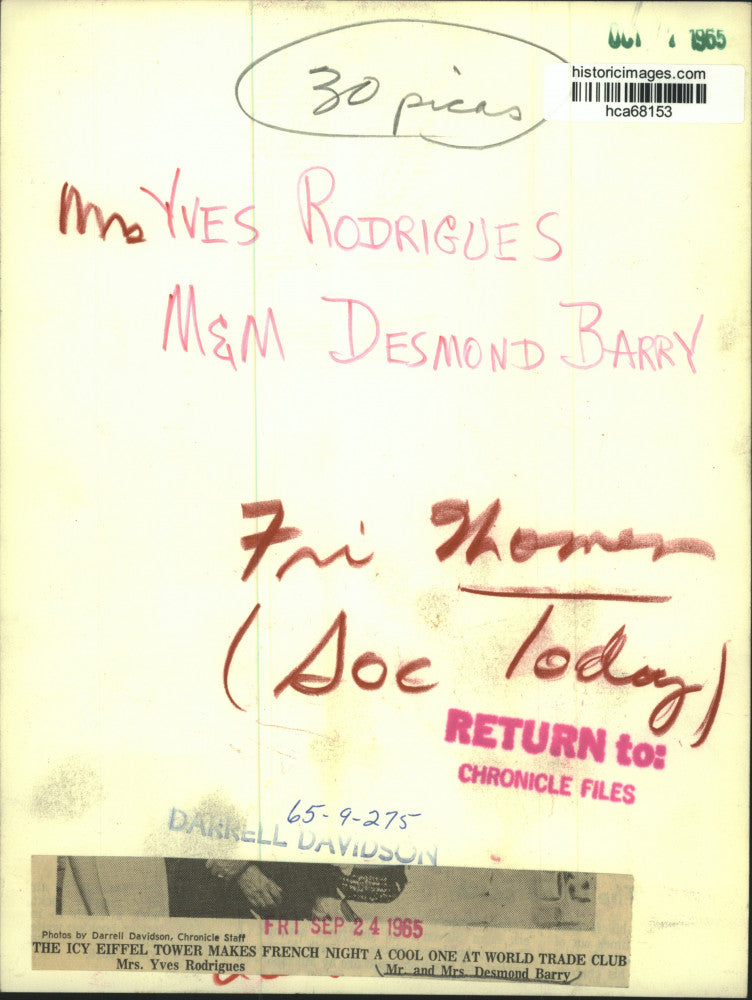 OCT 1 1965
30 picas
historicimages.com
hca68153
Mrs YVES RODRIGUES
M&M DESMOND BARRY
Fri
(Soc Today)
RETURN to:
CHRONICLE FILES
65-9-275
DARRELL DAVIDSON
FRI SEP 24 1965
Photos by Darrell Davidson, Chronicle Staff
THE ICY EIFFEL TOWER MAKES FRENCH NIGHT A COOL ONE AT WORLD TRADE CLUB
Mrs. Yves Rodrigues
Mr. and Mrs. Desmond Barry